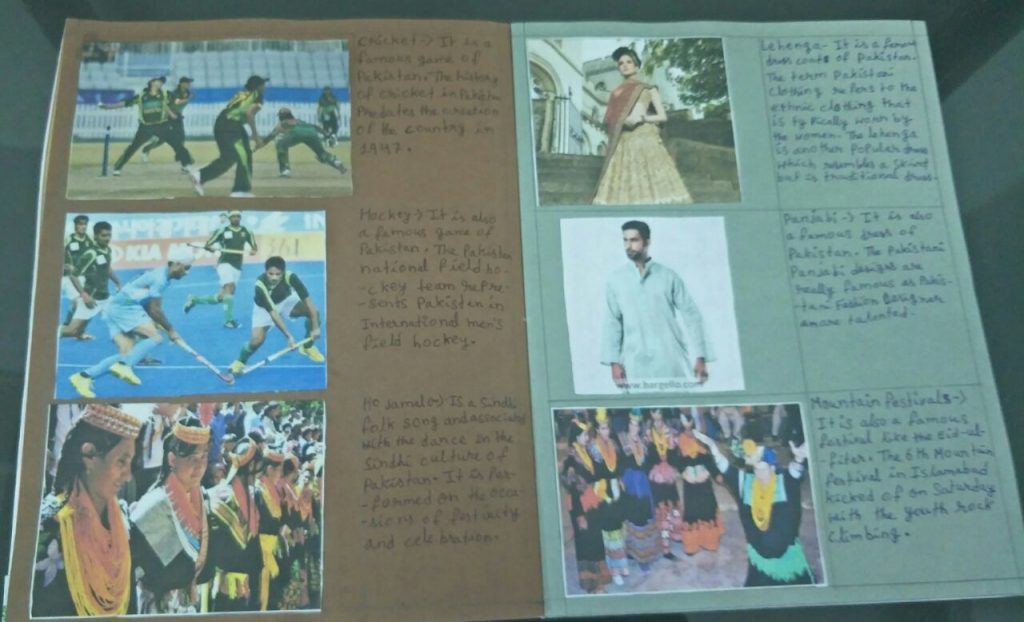 Cricket -> It is a
famous game of
Pakistan. The history
of cricket in Pakistan
Predates the creation
of the country in
1947.
Hockey -> It is also
a famous game of
Pakistan. The Pakistan
national field ho-
-ckey team repre-
-sents Pakistan in
International men's
field hockey.
Ho Jamalo -> Is a Sindhi
folk song and associated
with the dance in the
Sindhi culture of
Pakistan. It is per-
-formed on the occa-
-sions of festivity
and celebration.
KIA
Lehenga - It is a famous
dress of Pakistan.
The term Pakistani
clothing refers to the
ethnic clothing that
is typically worn by
the women. The lehenga
is another popular dress
which resembles a skirt
but is traditional dress.
Panjabi -> It is also
a famous dress of
Pakistan. The Pakistani
Panjabi designs are
really famous as Pakis-
-tani Fashion Designer
are talented.
www.bargello.com
Mountain Festivals ->
It is also a famous
festival like the Eid-ul-
fiter. The 6th Mountain
festival in Islamabad
kicked of on Saturday
with the youth rock
climbing.